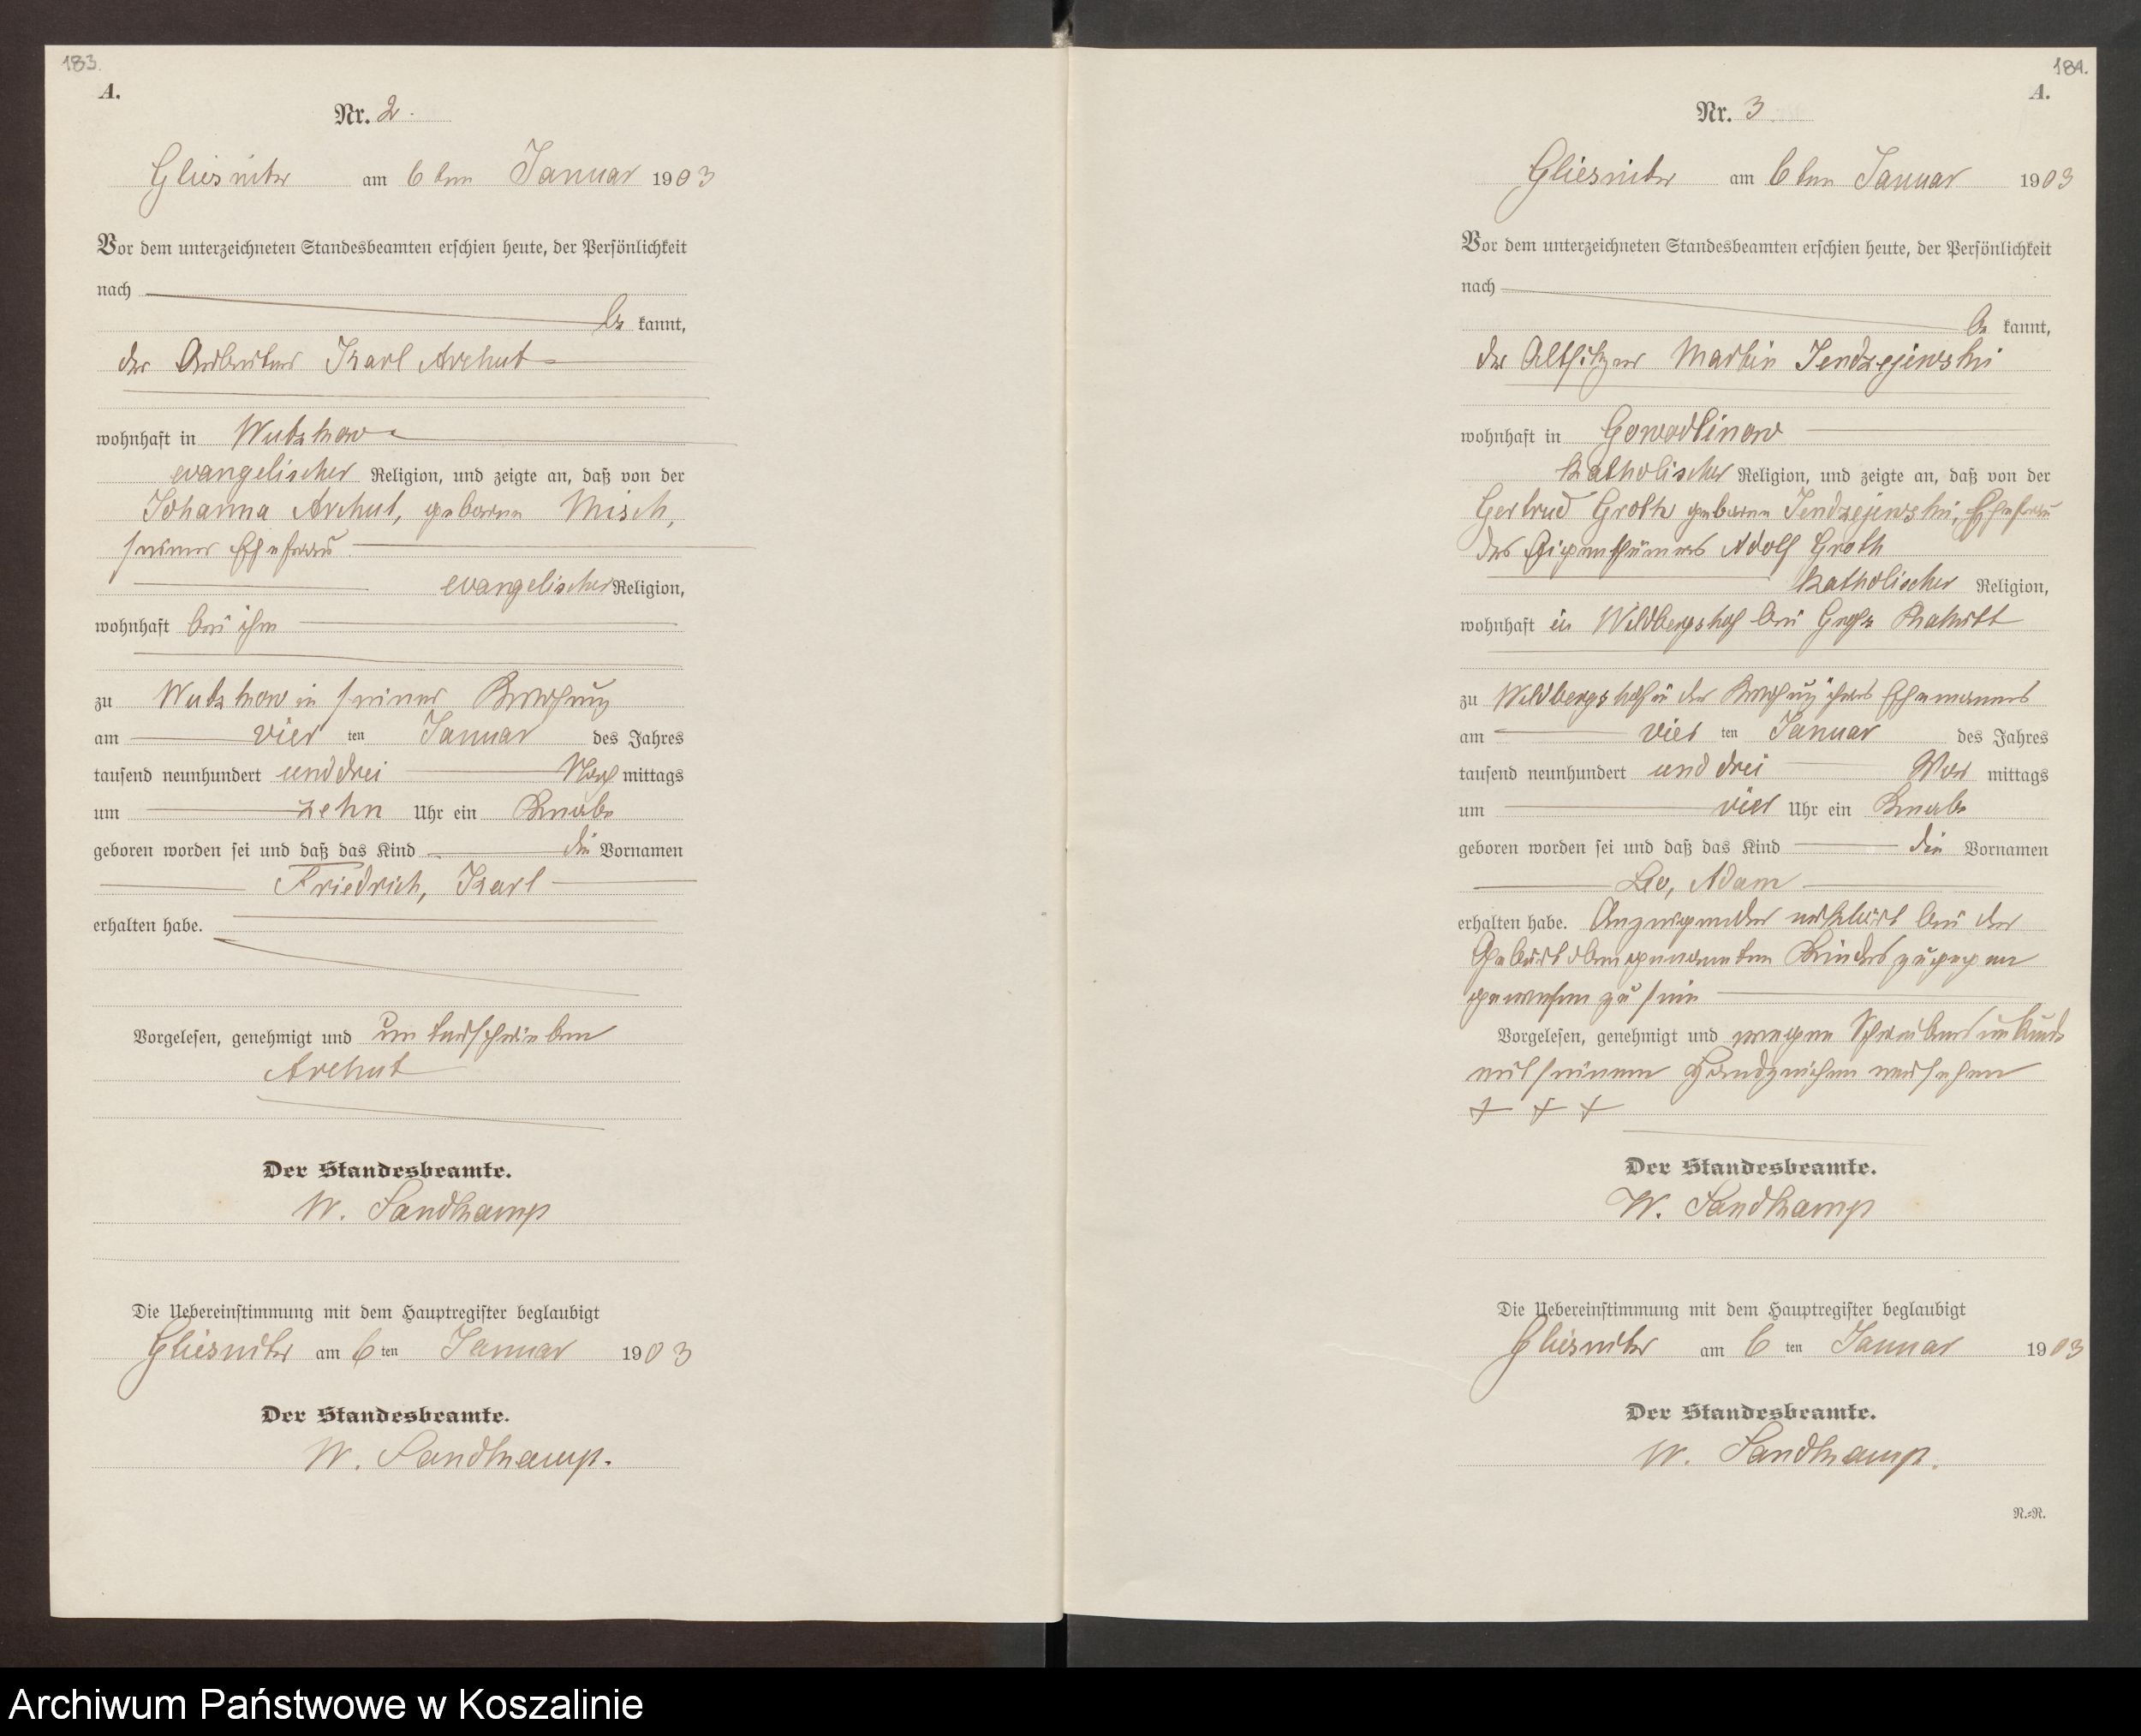 183.
A.
Nr. 2.
Gliesnitz am 6ten Januar 1903
Vor dem unterzeichneten Standesbeamten erschien heute, der Persönlichkeit
nach
be kannt,
der Arbeiter Karl Archut
wohnhaft in Wutzkow
evangelischer Religion, und zeigte an, daß von der
Johanna Archut, geborene Misch,
seiner Ehefrau
evangelischer Religion,
wohnhaft bei ihm
zu Wutzkow in seiner Wohnung
am vier ten Januar des Jahres
tausend neunhundert und drei Nach mittags
um zehn Uhr ein Knabe
geboren worden sei und daß das Kind die Vornamen
Friedrich, Karl
erhalten habe.
Vorgelesen, genehmigt und unterschrieben
Archut
Der Standesbeamte.
W. Sandkamp
Die Uebereinstimmung mit dem Hauptregister beglaubigt
Gliesnitz am 6 ten Januar 1903
Der Standesbeamte.
W. Sandkamp.
184.
A.
Nr. 3.
Gliesnitz am 6ten Januar 1903
Vor dem unterzeichneten Standesbeamten erschien heute, der Persönlichkeit
nach
be kannt,
der Altsitzer Martin Jendzejewski
wohnhaft in Gowodlinow
katholischer Religion, und zeigte an, daß von der
Gertrud Groth geborene Jendzejewski, Ehefrau
des Eigenthümers Adolf Groth
katholischer Religion,
wohnhaft in Wildbergshof bei Groß Rakitt
zu Wildbergshof in der Wohnung ihres Ehemannes
am vier ten Januar des Jahres
tausend neunhundert und drei Vor mittags
um vier Uhr ein Knabe
geboren worden sei und daß das Kind die Vornamen
Leo, Adam
erhalten habe. Anzeigender erklärt bei der
Geburt obengenannten Kindes zugegen
gewesen zu sein
Vorgelesen, genehmigt und wegen Schreibensunkunde
mit seinem Handzeichen versehen
+ + +
Der Standesbeamte.
W. Sandkamp
Die Uebereinstimmung mit dem Hauptregister beglaubigt
Gliesnitz am 6 ten Januar 1903
Der Standesbeamte.
W. Sandkamp.
R.=R.
Archiwum Państwowe w Koszalinie